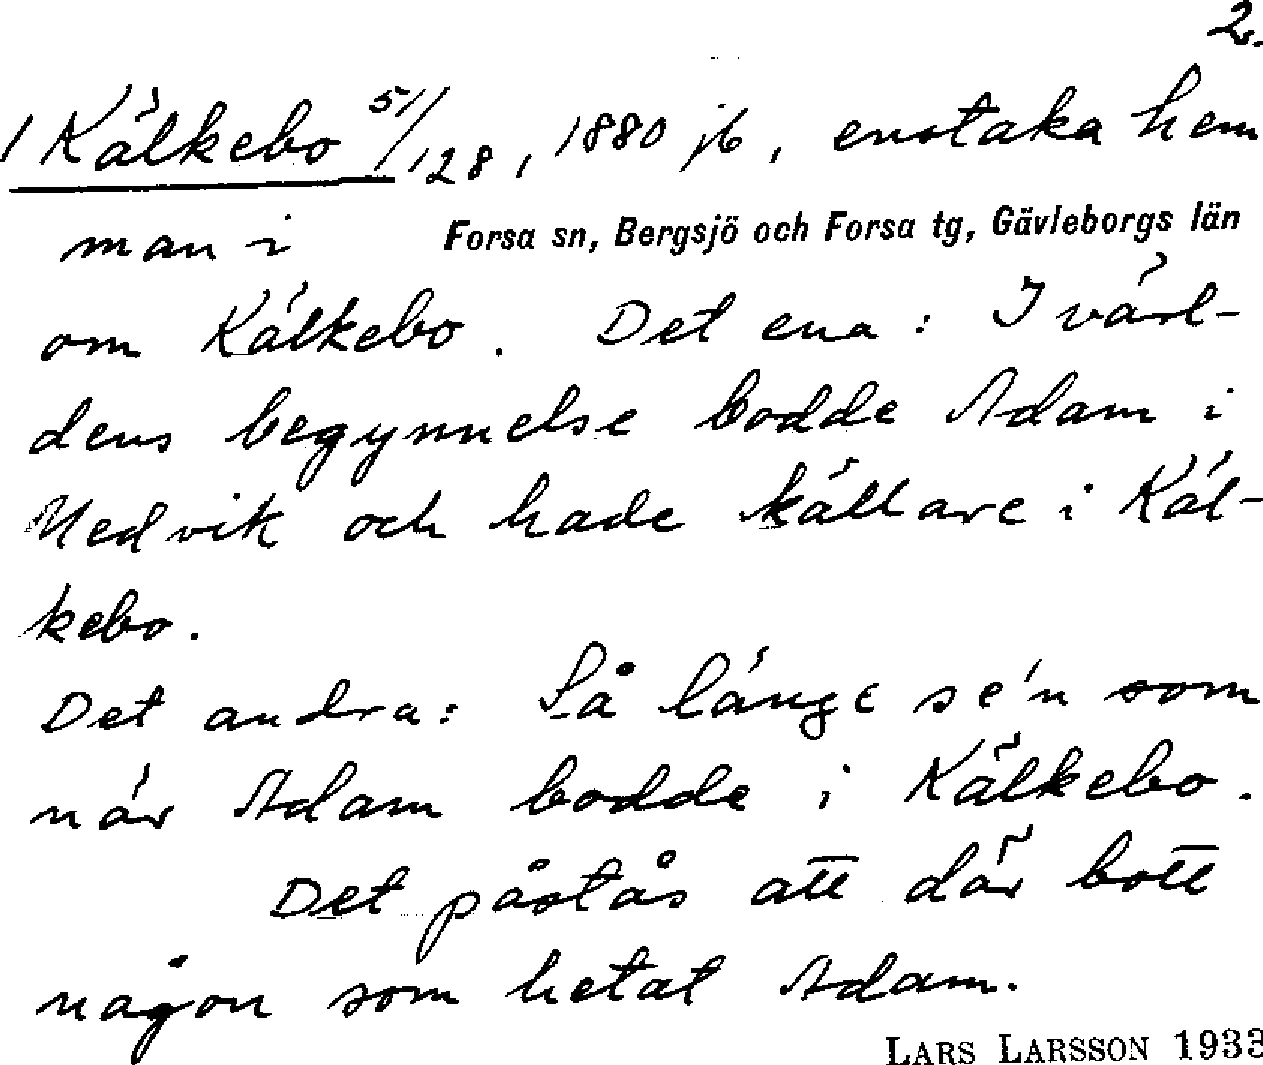 2.
1 Kälkebo 511/128, 1880 jb, enstaka hem
man i Forsa sn, Bergsjö och Forsa tg, Gävleborgs län
om Kälkebo. Det ena: I värl-
dens begynnelse bodde Adam i
Nedvik och hade källare i Käl-
kebo.
Det andra: Så länge se'n som
när Adam bodde i Kälkebo.
Det påstås att där bott
någon som hetat Adam.
LARS LARSSON 1933